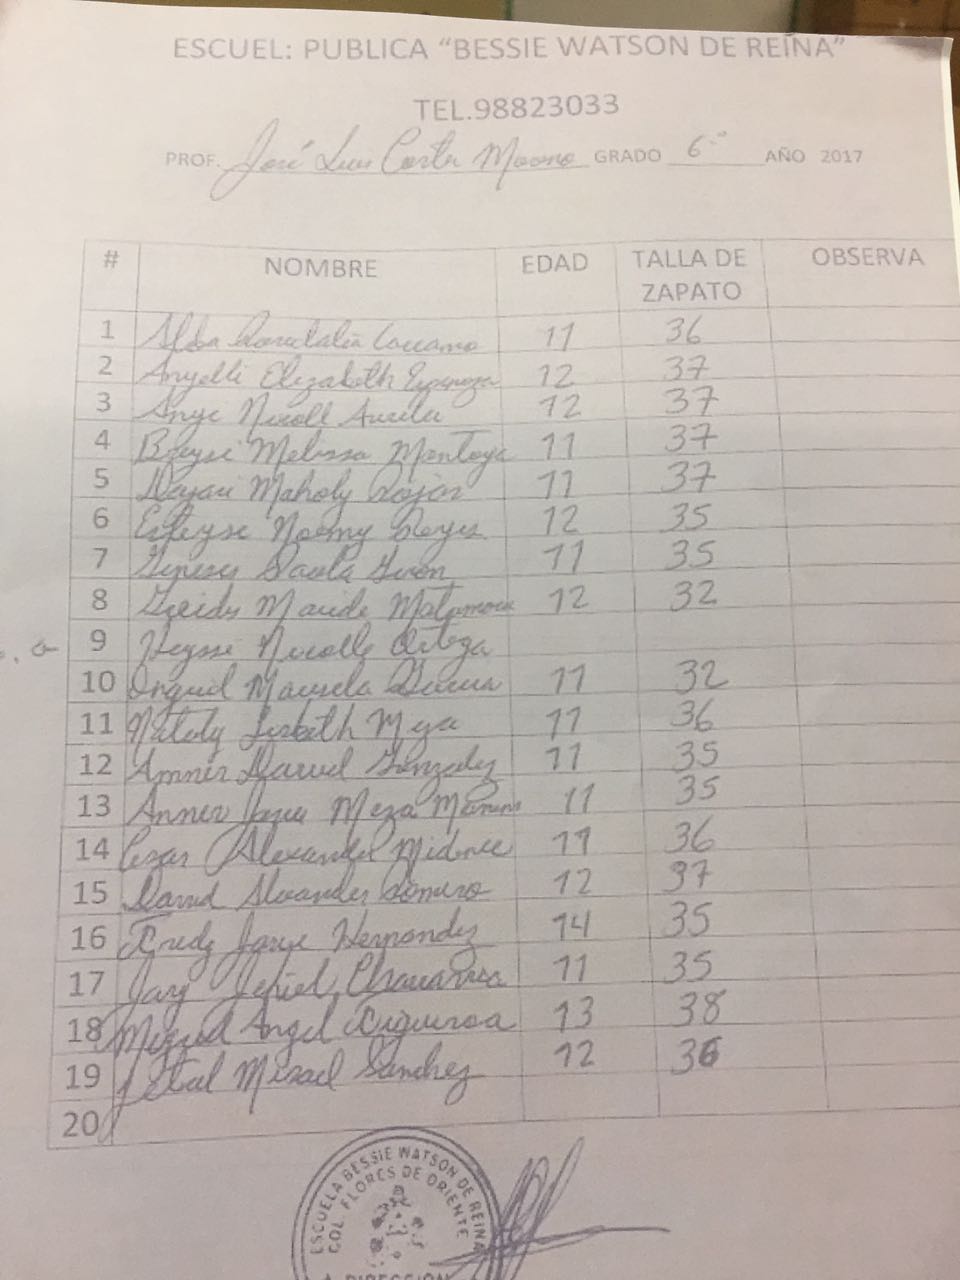 ESCUEL: PUBLICA “BESSIE WATSON DE REINA”
TEL.98823033
PROF. José Luis GRADO 6º AÑO 2017
# NOMBRE EDAD TALLA DE ZAPATO OBSERVA
1 Alba 11 36
2 Anyelli Elizabeth Espinoza 12 37
3 Angi Nicoll 12 37
4 Melissa Montoya 11 37
5 Maholy Rojas 11 37
6 Noemy Reyes 12 35
7 Genesis Paola Giron 11 35
8 12 32
9 Heyssi Nicolle Ortega
10 Maricela 11 32
11 Nataly Lisbeth Mejia 11 36
12 Daniel Gonzalez 11 35
13 Anner Josue Meza 11 35
14 Cesar Alexander Midence 11 36
15 David Alexander Romero 12 37
16 Fredy Jorge Hernandez 14 35
17 Jary Jehiel Chavarria 11 35
18 Miguel Angel Figueroa 13 38
19 Misael Sanchez 12 36
20
ESCUELA BESSIE WATSON DE REINA
COL. FLORES DE ORIENTE
DIRECCION